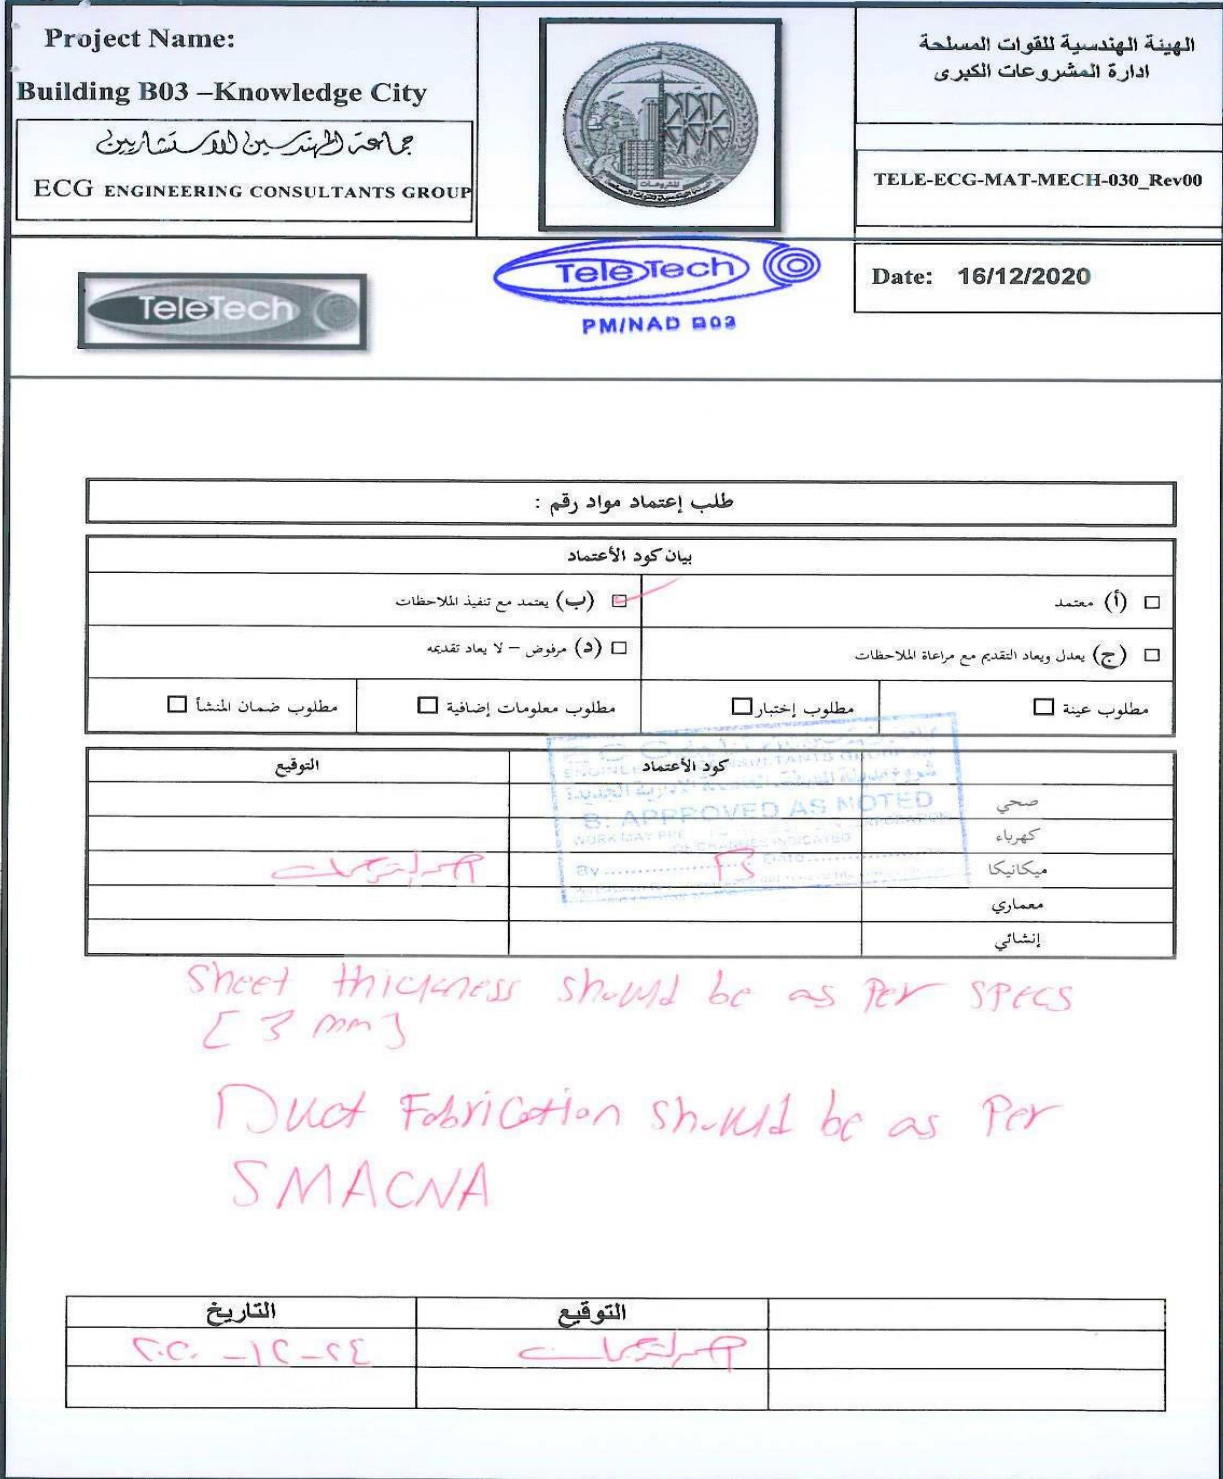 Project Name:
Building B03 –Knowledge City
جماعة المهندسين الاستشاريين
ECG ENGINEERING CONSULTANTS GROUP
الهيئة الهندسية للقوات المسلحة
ادارة المشروعات الكبرى
TELE-ECG-MAT-MECH-030_Rev00
TeleTech
TeleTech
PM/NAD B03
Date: 16/12/2020
طلب إعتماد مواد رقم :
بيان كود الأعتماد
(أ) معتمد
(ب) يعتمد مع تنفيذ الملاحظات
(ج) يعدل ويعاد التقديم مع مراعاة الملاحظات
(د) مرفوض – لا يعاد تقديمه
مطلوب عينة
مطلوب إختبار
مطلوب معلومات إضافية
مطلوب ضمان المنشأ
كود الأعتماد
التوقيع
صحي
كهرباء
ميكانيكا
معماري
إنشائي
ECG
B: APPROVED AS NOTED
By
Date
B
Sheet thickness should be as Per SPecs
[3 mm]
Duct Fabrication should be as Per
SMACNA
التوقيع
التاريخ
٢٤-١٢-٢٠٢٠